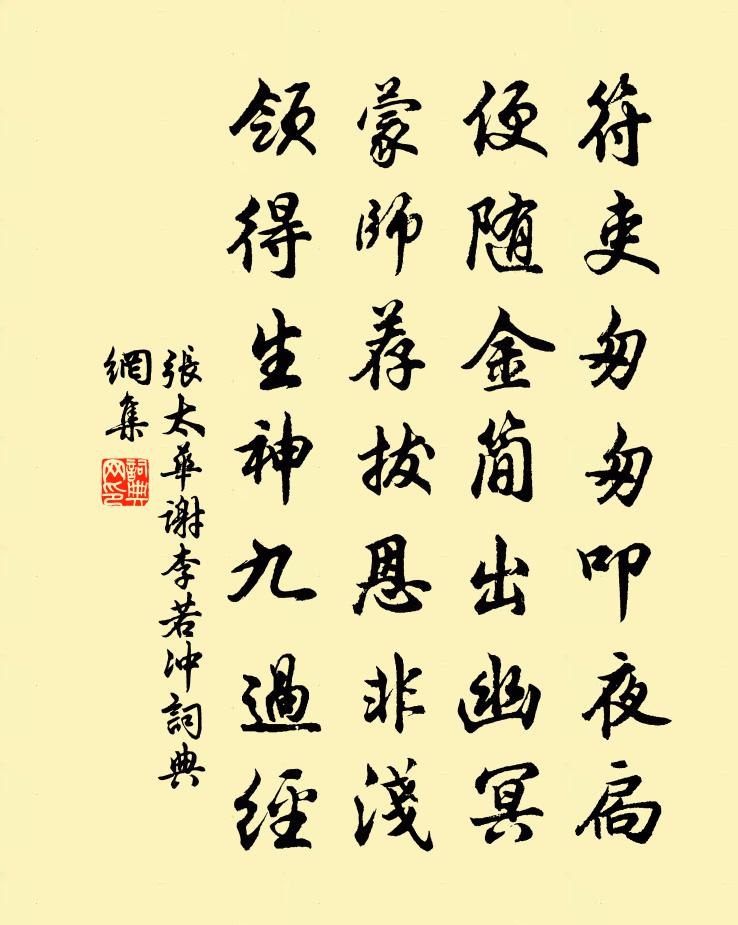 符吏匆匆叩夜扃
便随金简出幽冥
蒙师荐拔恩非淺
领得生神九過經
張太華謝李若冲詞典
網集
詞典網印